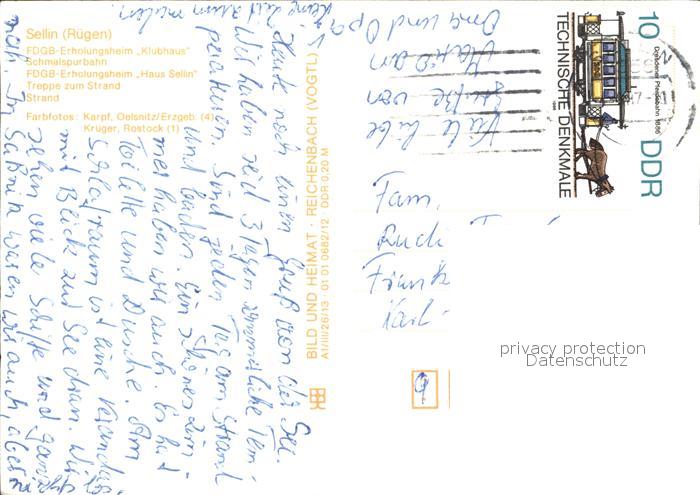 Sellin (Rügen)
FDGB-Erholungsheim „Klubhaus"
Schmalspurbahn
FDGB-Erholungsheim „Haus Sellin"
Treppe zum Strand
Strand
Farbfotos: Karpf, Oelsnitz/Erzgeb. (4)
Krüger, Rostock (1)
Heute noch einen Gruß von der See.
Wir haben seit 3 Tagen sommerliche Tem-
peraturen. Sind jeden Tag am Strand
und baden. Ein schönes Zim-
mer haben wir auch. Es hat
Toilette und Dusche. Am
Schlafraum ist eine Veranda
mit Blick zur See dran. Wir
sehen viele Schiffe und ganz
nah. In Saßnitz waren wir auch, aber
keine Zeit zum
Viele liebe
Grüße von
Oma und Opa
BILD UND HEIMAT · REICHENBACH (VOGTL)
A1/III/26/13 · 01 01 0682/12 · DDR 0,20 M
10 DDR
Dresdener Pferdebahn 1886
TECHNISCHE DENKMALE
Fam.
Rudi
Karl-
privacy protection
Datenschutz